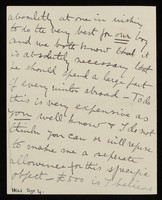 absolutely at one in wishing
to do the very best for our boy
and we both know that it
is absolutely necessary that
he should spend a large part
of every winter abroad - To do
this is very expensive as
you well know & I do not
think you can refuse
to make me a separate
allowance for this specific
object - £500 is I believe